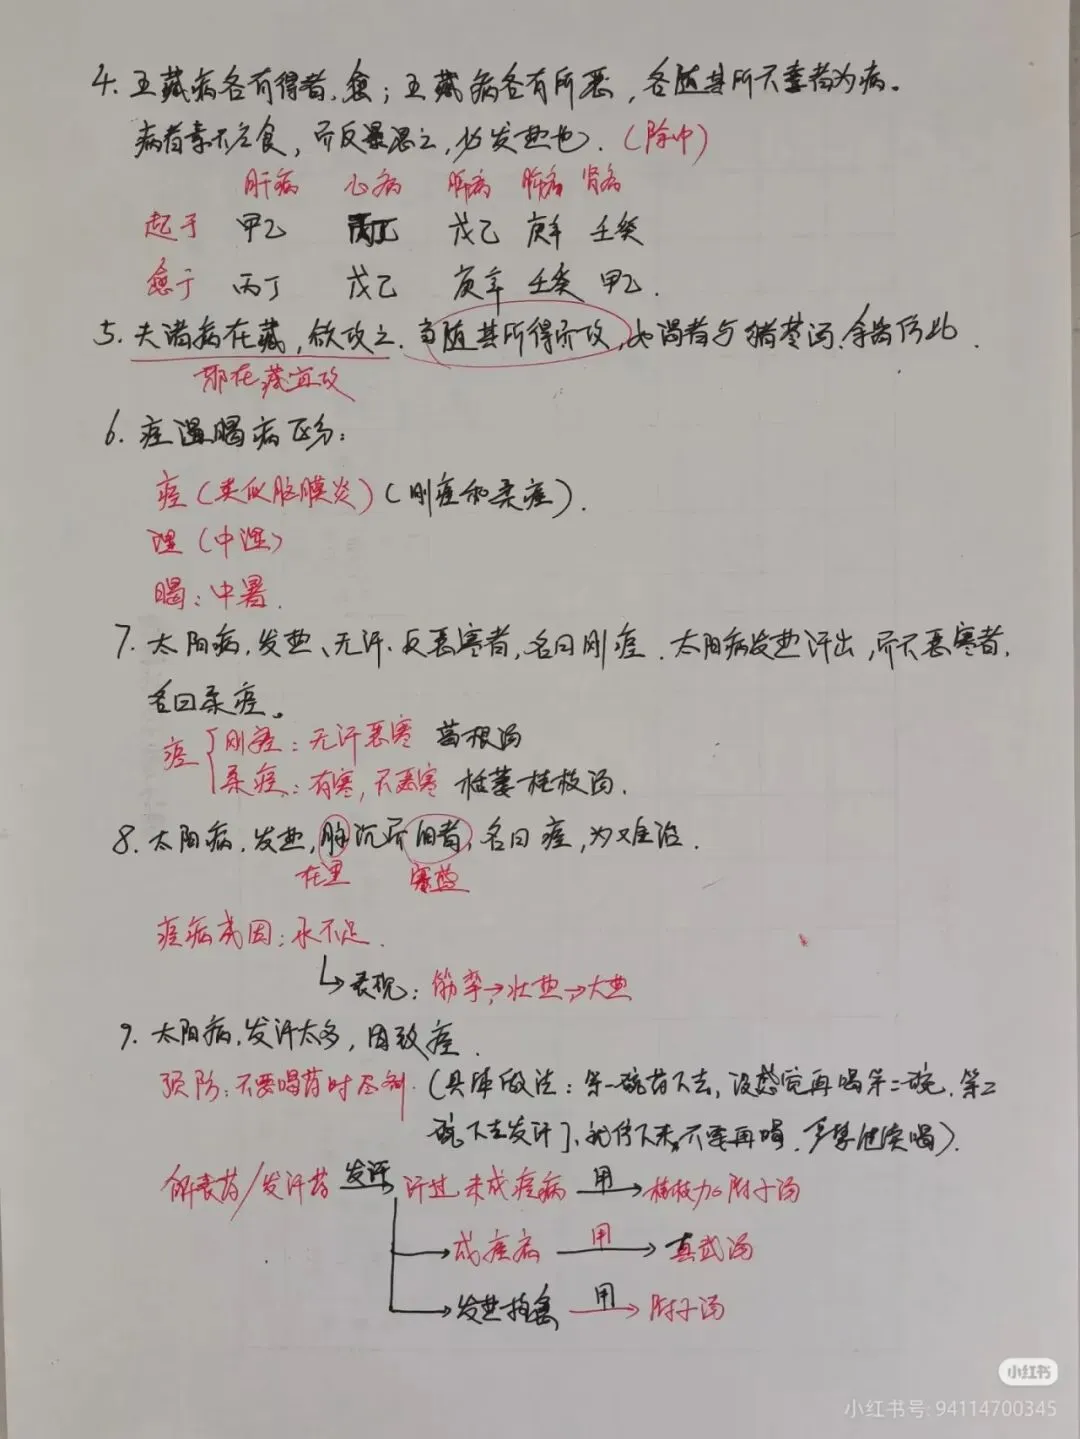 4. 五藏病各有得者,愈；五藏病各有所恶，各随其所不喜者为病。
病者素不应食，而反暴思之，必发热也.（除中）
肝病 心病 脾病 肺病 肾病
起于 甲乙 丙丁 戊己 庚辛 壬癸
愈于 丙丁 戊己 庚辛 壬癸 甲乙.
5. 夫诸病在藏，欲攻之.当随其所得而攻,如渴者与猪苓汤.余皆仿此.
邪在藏宜攻
6. 痉湿暍病正分：
痉（类似脑膜炎）（刚痉和柔痉）.
湿（中湿）
暍：中暑.
7. 太阳病,发热、无汗.反恶寒者,名曰刚痉.太阳病发热汗出,而不恶寒者,
名曰柔痉。
痉 刚痉：无汗恶寒 葛根汤
柔痉：有寒,不恶寒 栝蒌桂枝汤.
8. 太阳病,发热,脉沉而细者,名曰痉,为难治.
在里 寒盛
痉病成因：水不足.
表现：筋挛→壮热→大热
9. 太阳病,发汗太多,因致痉.
预防：不要喝药时尽剂.（具体做法：第一碗药下去,没感觉再喝第二碗.第二
碗下去发汗了,就停下来,不要再喝.
解表药/发汗药 发汗 汗过未成痉病 用 桂枝加附子汤
成痉病 用 真武汤
发热 用 附子汤
小红书
小红书号: 94114700345